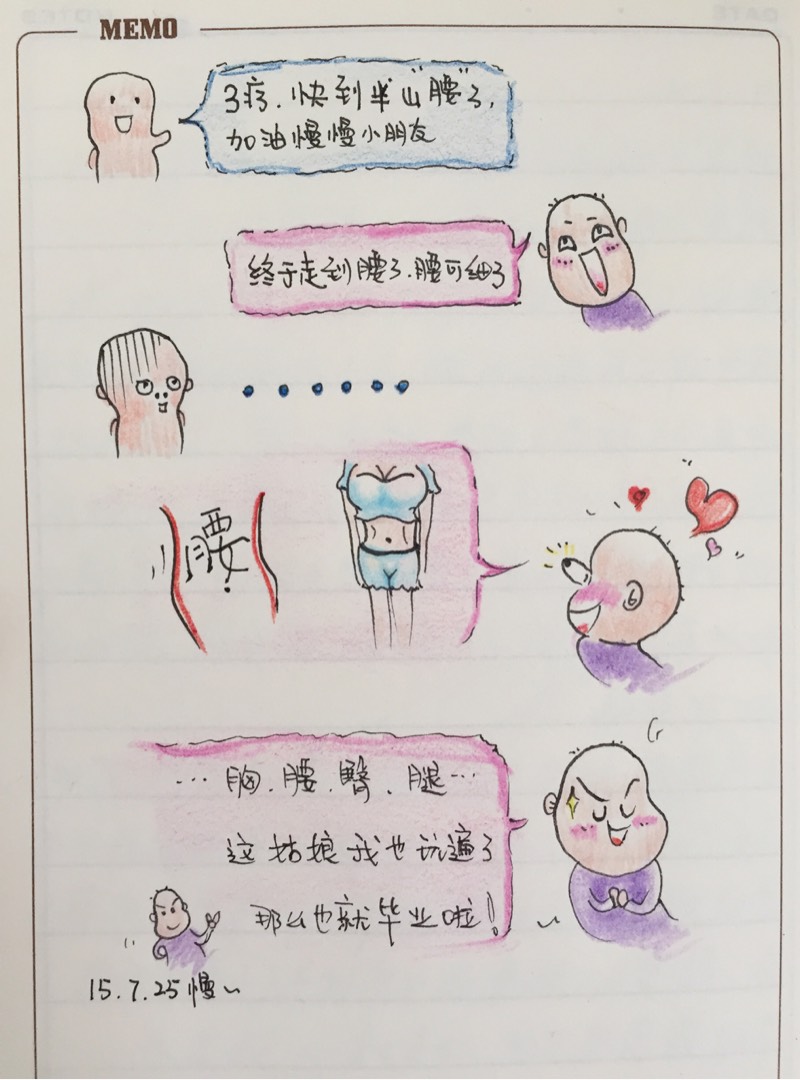 MEMO
3疗.快到半山"腰"了,
加油慢慢小朋友
终于走到腰了.腰可细了
......
腰!
...胸.腰.臀.腿...
这姑娘我也玩遍了
那么也就毕业啦!
15.7.25慢~